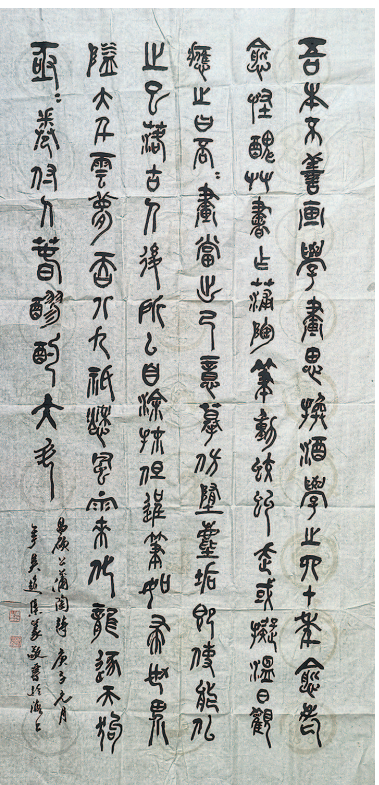 吾本不善画學畫思換酒學之四十年愈老
愈怪醜艸書占蒲陶筆動蛟虯走或擬溫日觀
應之曰否=畫當出己意摹仿墮塵垢即使能似
之已落古人後所以自涂抹但追筆如帚世界
隘大千雲夢吞八九祇愁風雨來化龍逐天狗
亟=付人春醪酌大斗
昌碩公蒲陶詩庚子元月
敬書於海上